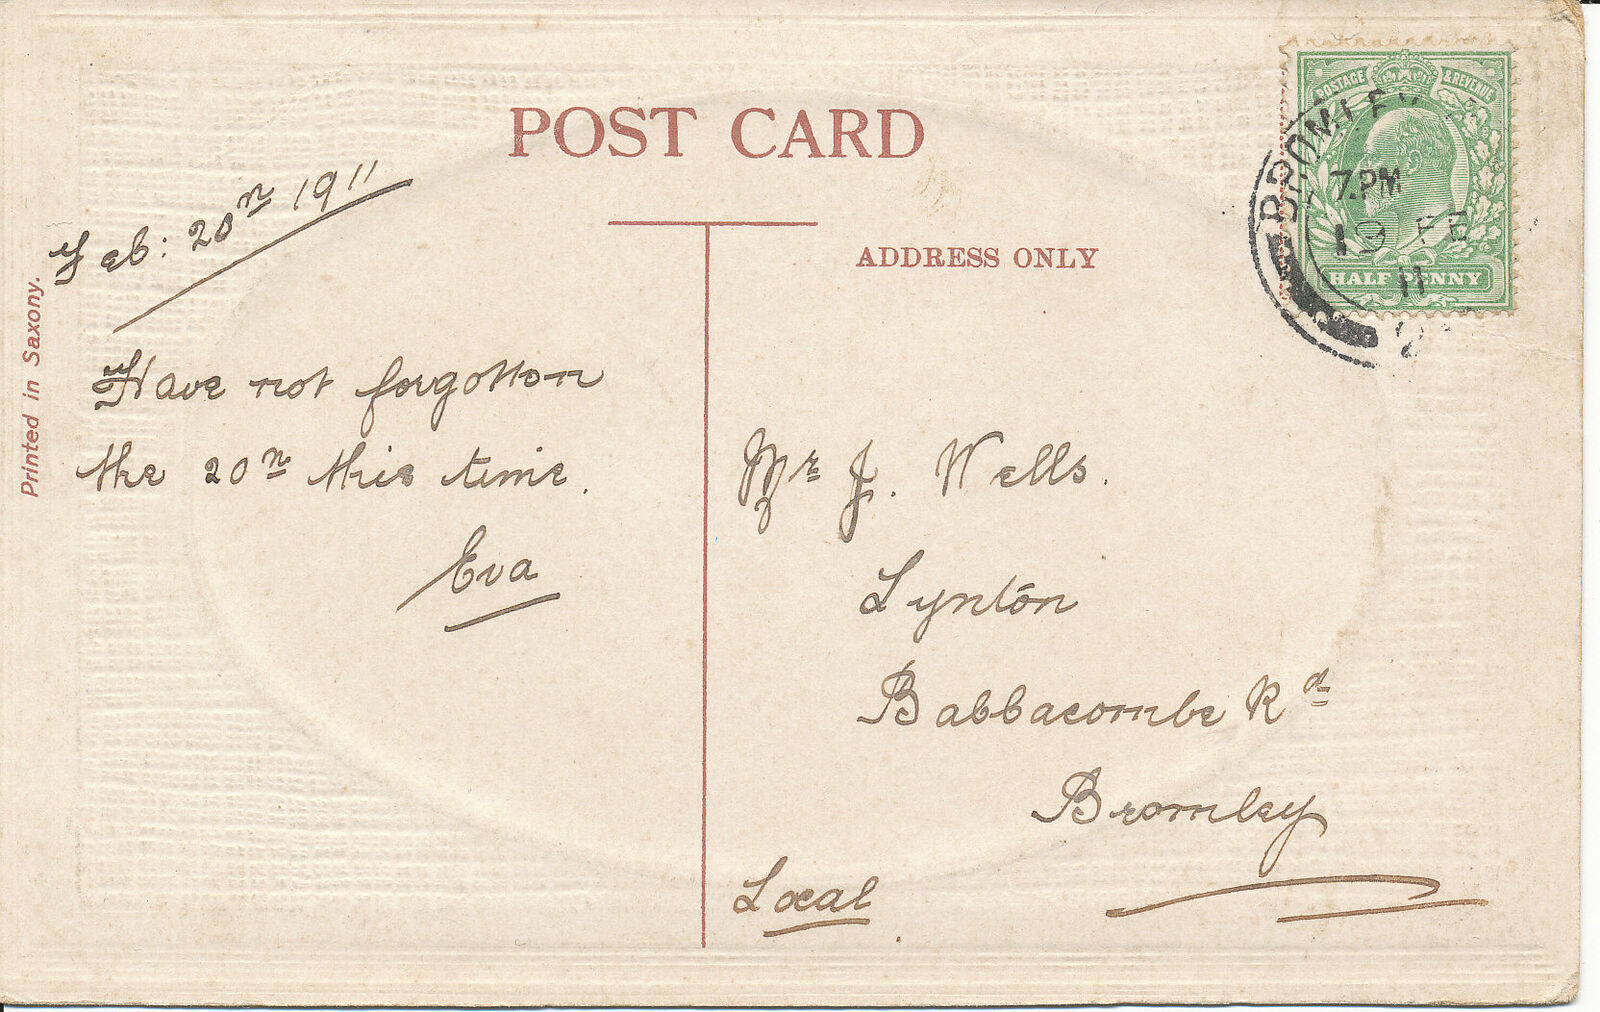 POST CARD
ADDRESS ONLY
Printed in Saxony.
Feb: 20n 1911
Have not forgotten
the 20n this time.
Eva
Mr J. Wells.
Lynton
Babbacombe Rd
Bromley
Local
POSTAGE & REVENUE
HALFPENNY
BROMLEY
7.PM
19 FE
11